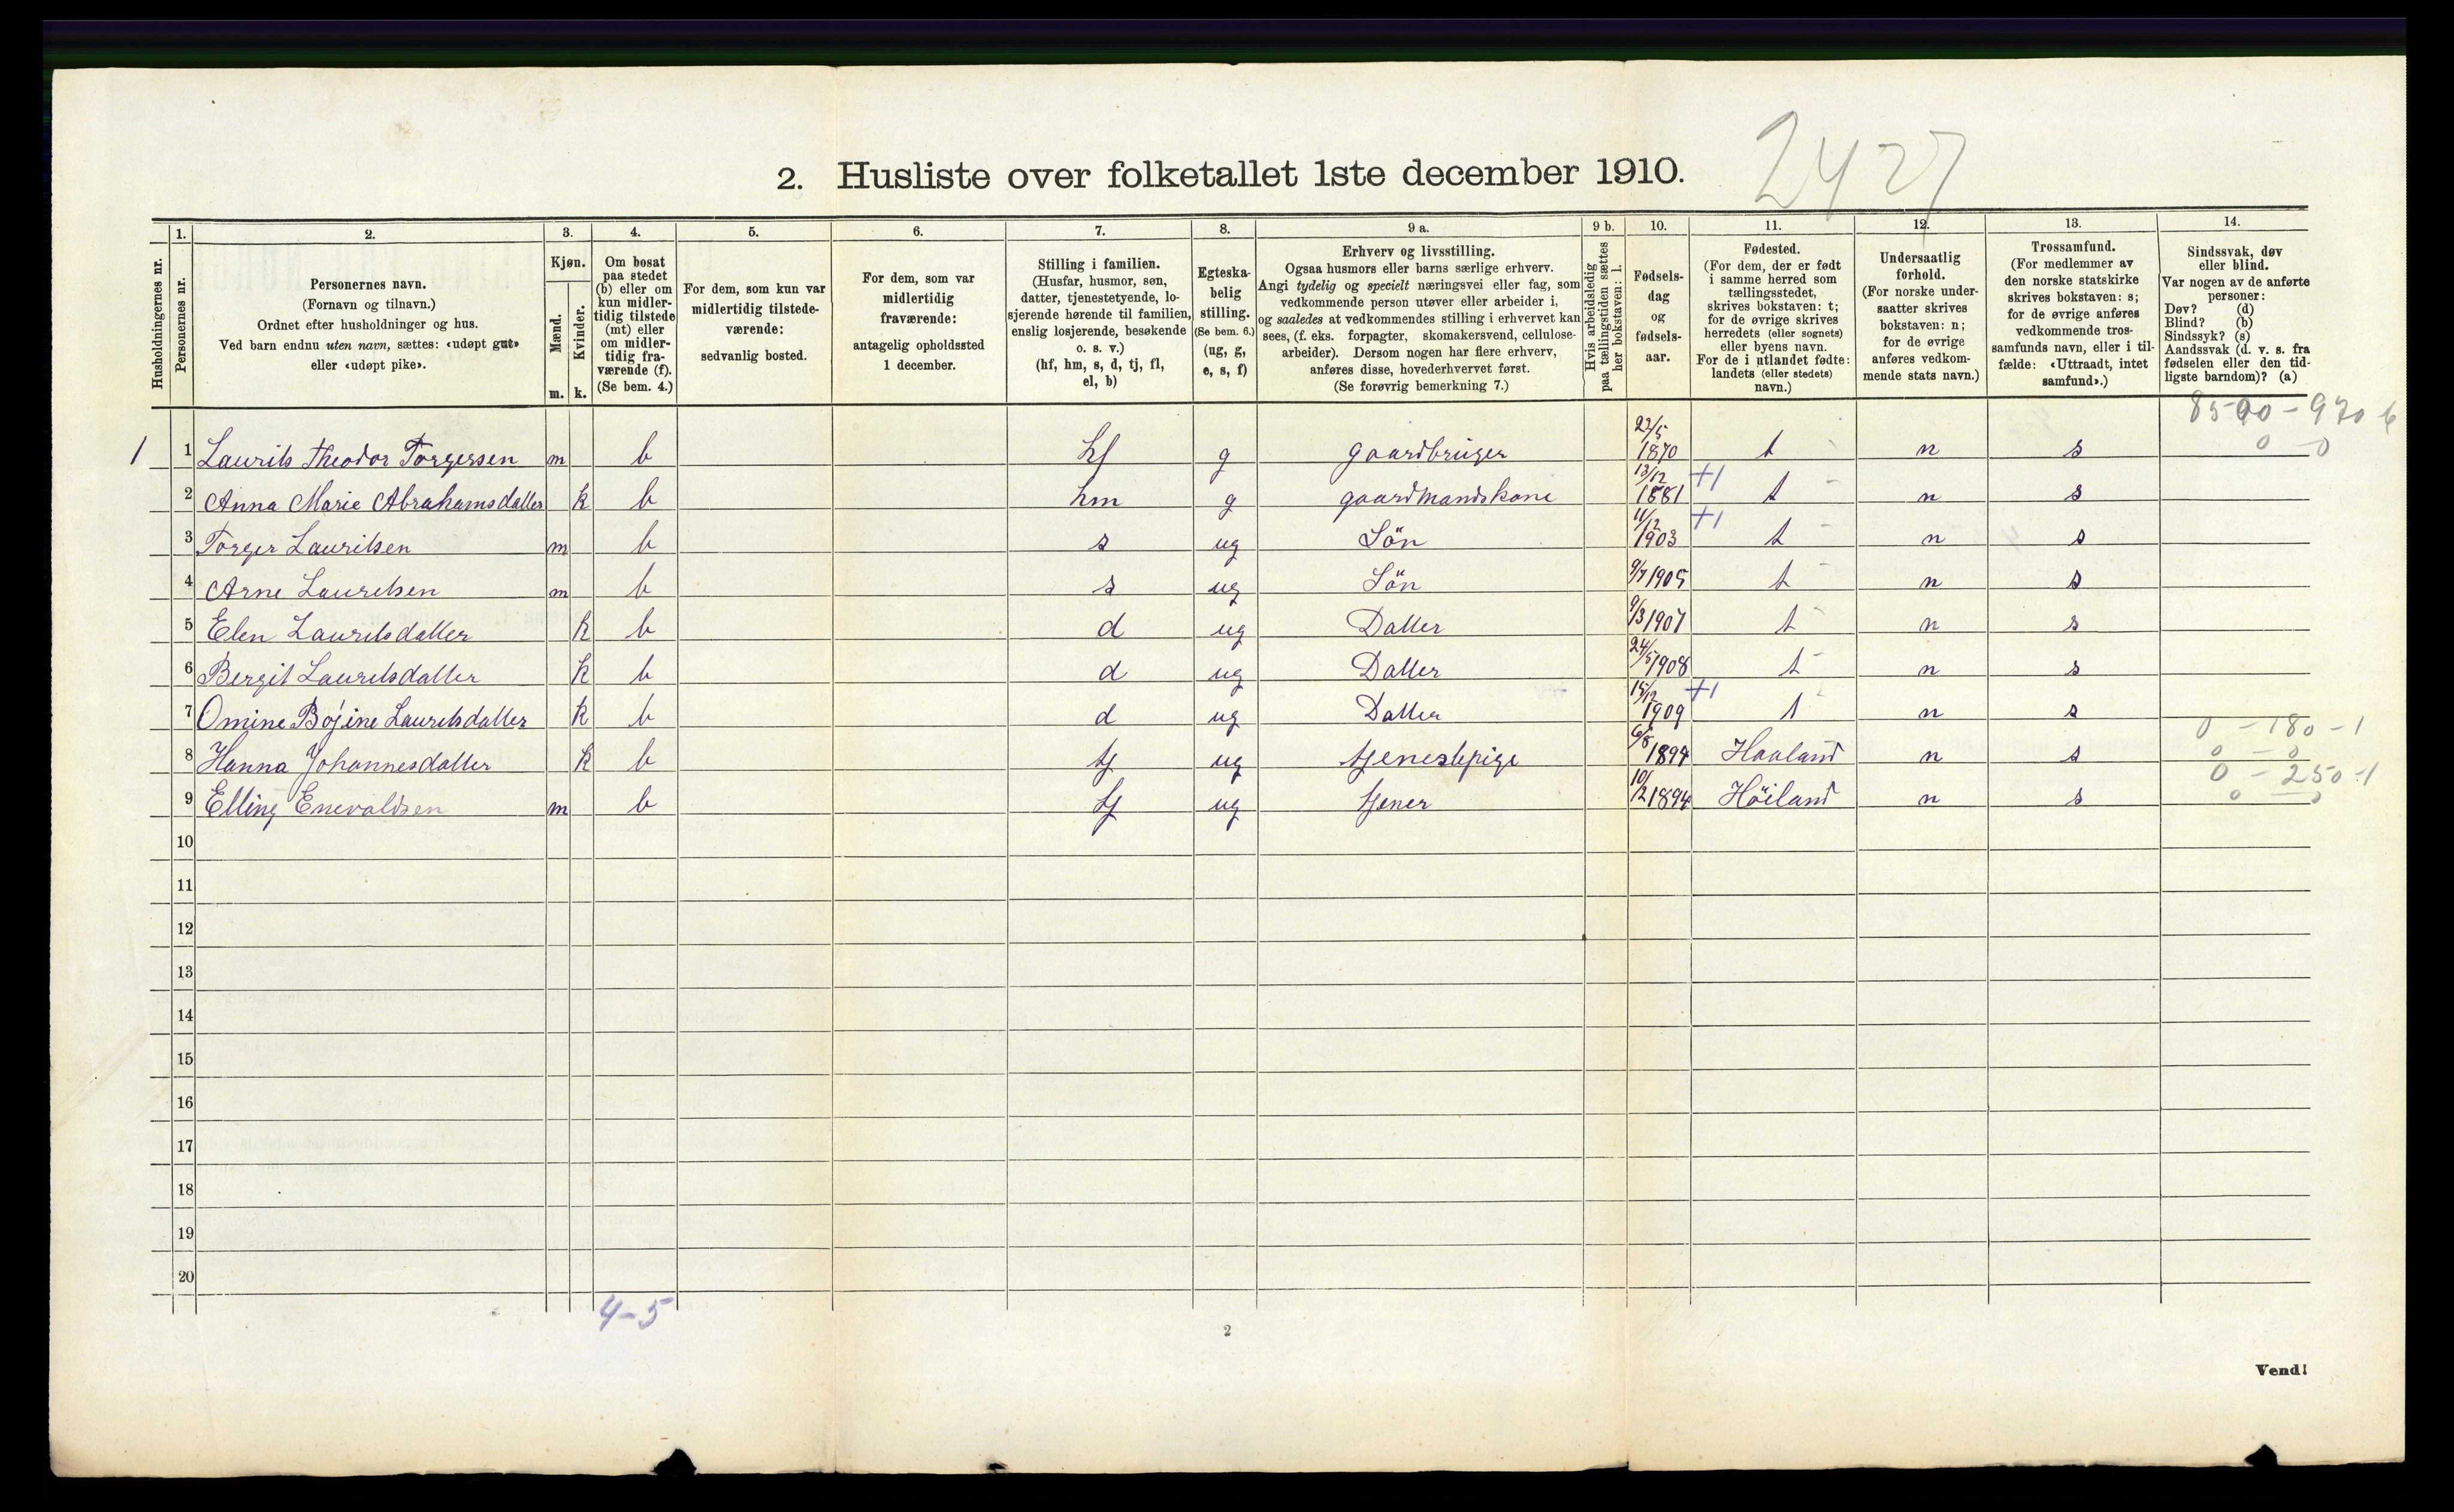 2427
2. Husliste over folketallet 1ste december 1910.
Husholdningernes nr.
1.
Personernes nr.
2.
Personernes navn.
(Fornavn og tilnavn.)
Ordnet efter husholdninger og hus.
Ved barn endnu uten navn, sættes: «udøpt gut»
eller «udøpt pike».
3.
Kjøn.
Mænd.
Kvinder.
m. k.
4.
Om bosat
paa stedet
(b) eller om
kun midler-
tidig tilstede
(mt) eller
om midler-
tidig fra-
værende (f).
(Se bem. 4.)
5.
For dem, som kun var
midlertidig tilstede-
værende:
sedvanlig bosted.
6.
For dem, som var
midlertidig
fraværende:
antagelig opholdssted
1 december.
7.
Stilling i familien.
(Husfar, husmor, søn,
datter, tjenestetyende, lo-
sjerende hørende til familien,
enslig losjerende, besøkende
o. s. v.)
(hf, hm, s, d, tj, fl,
el, b)
8.
Egteska-
belig
stilling.
(Se bem. 6.)
(ug, g,
e, s, f)
9 a.
Erhverv og livsstilling.
Ogsaa husmors eller barns særlige erhverv.
Angi tydelig og specielt næringsvei eller fag, som
vedkommende person utøver eller arbeider i,
og saaledes at vedkommendes stilling i erhvervet kan
sees, (f. eks. forpagter, skomakersvend, cellulose-
arbeider). Dersom nogen har flere erhverv,
anføres disse, hovederhvervet først.
(Se forøvrig bemerkning 7.)
9 b.
Hvis arbeidsledig
paa tællingstiden sættes
her bokstaven: l.
10.
Fødsels-
dag
og
fødsels-
aar.
11.
Fødested.
(For dem, der er født
i samme herred som
tællingsstedet,
skrives bokstaven: t;
for de øvrige skrives
herredets (eller sognets)
eller byens navn.
For de i utlandet fødte:
landets (eller stedets)
navn.)
12.
Undersaatlig
forhold.
(For norske under-
saatter skrives
bokstaven: n;
for de øvrige
anføres vedkom-
mende stats navn.)
13.
Trossamfund.
(For medlemmer av
den norske statskirke
skrives bokstaven: s;
for de øvrige anføres
vedkommende tros-
samfunds navn, eller i til-
fælde: «Uttraadt, intet
samfund».)
14.
Sindssvak, døv
eller blind.
Var nogen av de anførte
personer:
Døv? (d)
Blind? (b)
Sindssyk? (s)
Aandssvak (d. v. s. fra
fødselen eller den tid-
ligste barndom)? (a)
8500 - 970 6
0 - 0
1 1 Laurits Theodor Torgersen m b hf g gaardbruger 22/5 1870 t n s
2 Anna Marie Abrahamsdatter k b hm g gaardmandskone 13/12 1881 +1 t n s
3 Torger Lauritsen m b s ug Sön 11/12 1903 +1 t n s
4 Arne Lauritsen m b s ug Sön 9/7 1905 t n s
5 Elen Lauritsdatter k b d ug Datter 9/3 1907 t n s
6 Bergit Lauritsdatter k b d ug Datter 24/5 1908 t n s
7 Omine Bojine Lauritsdatter k b d ug Datter 15/12 1909 +1 t n s
0 - 180 - 1
8 Hanna Johannesdatter k b tj ug tjenestepige 6/8 1894 Haaland n s 0 - 0
0 - 250 - 1
9 Elling Enevaldsen m b tj ug tjener 10/2 1894 Höiland n s 0 - 0
10
11
12
13
14
15
16
17
18
19
20
4-5
2
Vend!